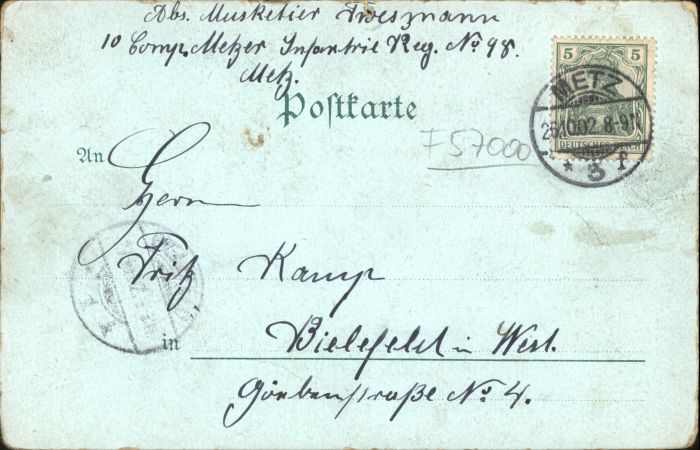 Abs. Musketier Driesmann
10 Comp. Metzer Infantrie Reg. No 98.
Metz.
Postkarte
5 5
DEUTSCHES REICH
METZ
26.10.02 8-9
* 3 f
F 57000
An
Herrn
Fritz Kamp
in Bielefeld in West.
Göbenstraße No 4.